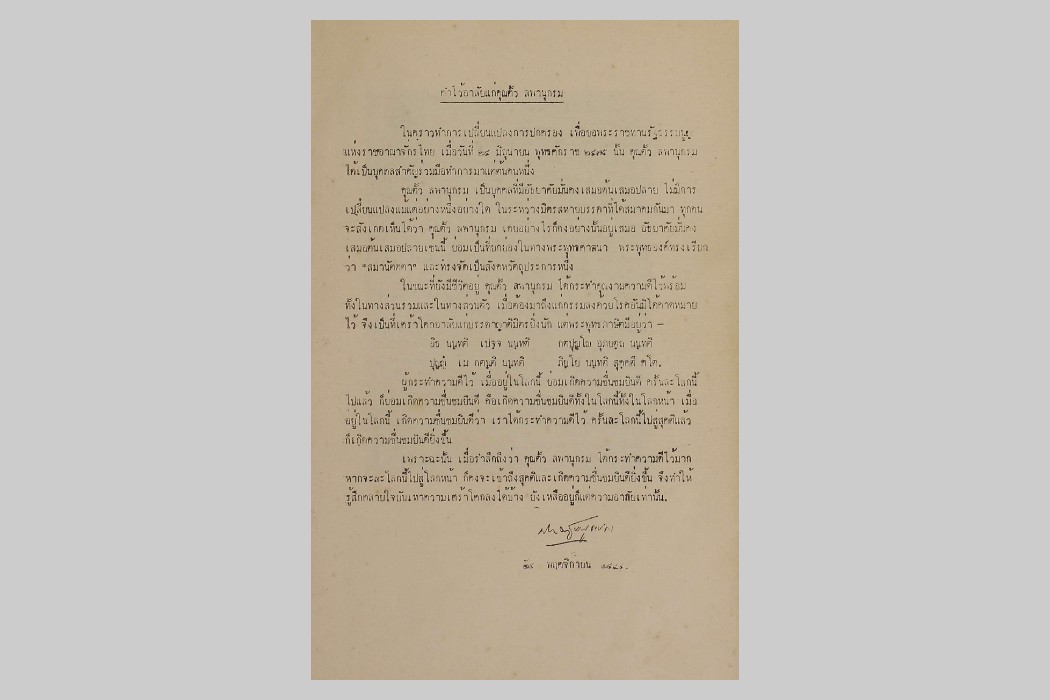 คำไว้อาลัยแก่คุณตั้ว ลพานุกรม
ในคราวทำการเปลี่ยนแปลงการปกครอง เพื่อขอพระราชทานรัฐธรรมนูญ
แห่งราชอาณาจักรไทย เมื่อวันที่ ๒๔ มิถุนายน พุทธศักราช ๒๔๗๕ นั้น คุณตั้ว ลพานุกรม
ได้เป็นบุคคลสำคัญร่วมมือทำการมาแต่ต้นคนหนึ่ง
คุณตั้ว ลพานุกรม เป็นบุคคลที่มีอัธยาศัยมั่นคงเสมอต้นเสมอปลาย ไม่มีการ
เปลี่ยนแปลงแม้แต่อย่างหนึ่งอย่างใด ในระหว่างมิตรสหายบรรดาที่ได้สมาคมกันมา ทุกคน
จะสังเกตเห็นได้ว่า คุณตั้ว ลพานุกรม เคยอย่างไรก็คงอย่างนั้นอยู่เสมอ อัธยาศัยมั่นคง
เสมอต้นเสมอปลายเช่นนี้ ย่อมเป็นที่ยกย่องในทางพระพุทธศาสนา พระพุทธองค์ทรงเรียก
ว่า "สมานัตตตา" และทรงจัดเป็นสังคหวัตถุประการหนึ่ง
ในขณะที่ยังมีชีวิตอยู่ คุณตั้ว ลพานุกรม ได้กระทำคุณงามความดีไว้พร้อม
ทั้งในทางส่วนรวมและในทางส่วนตัว เมื่อต้องมาถึงแก่กรรมลงด้วยโรคอันมิได้คาดหมาย
ไว้ จึงเป็นที่เศร้าโศกอาลัยแก่บรรดาญาติมิตรยิ่งนัก แต่พระพุทธภาษิตมีอยู่ว่า –
อิธ นนฺทติ เปจฺจ นนฺทติ กตปุญฺโญ อุภยตฺถ นนฺทติ
ปุญฺญํ เม กตนฺติ นนฺทติ ภิยฺโย นนฺทติ สุคฺคตึ คโต.
ผู้กระทำความดีไว้ เมื่ออยู่ในโลกนี้ ย่อมเกิดความชื่นชมยินดี ครั้นละโลกนี้
ไปแล้ว ก็ย่อมเกิดความชื่นชมยินดี คือเกิดความชื่นชมยินดีทั้งในโลกนี้ทั้งในโลกหน้า เมื่อ
อยู่ในโลกนี้ เกิดความชื่นชมยินดีว่า เราได้กระทำความดีไว้ ครั้นละโลกนี้ไปสู่สุคติแล้ว
ก็เกิดความชื่นชมยินดียิ่งขึ้น
เพราะฉะนั้น เมื่อรำลึกถึงว่า คุณตั้ว ลพานุกรม ได้กระทำความดีไว้มาก
หากจะละโลกนี้ไปสู่โลกหน้า ก็คงจะเข้าถึงสุคติและเกิดความชื่นชมยินดียิ่งขึ้น จึงทำให้
รู้สึกคลายใจบันเทาความเศร้าโศกลงได้บ้าง ยังเหลืออยู่ก็แต่ความอาลัยเท่านั้น.
พฤศจิกายน ๒๔๘๔.